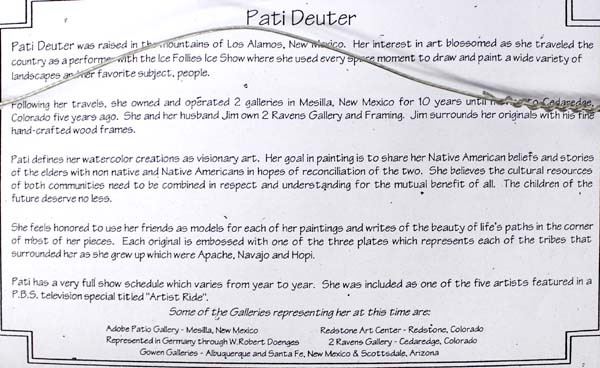 Pati Deuter
Pati Deuter was raised in the mountains of Los Alamos, New Mexico. Her interest in art blossomed as she traveled the
country as a performer with the Ice Follies Ice Show where she used every space moment to draw and paint a wide variety of
landscapes and her favorite subject, people.
Following her travels, she owned and operated 2 galleries in Mesilla, New Mexico for 10 years until to Cedaredge,
Colorado five years ago. She and her husband Jim own 2 Ravens Gallery and Framing. Jim surrounds her originals with his fine
hand-crafted wood frames.
Pati defines her watercolor creations as visionary art. Her goal in painting is to share her Native American beliefs and stories
of the elders with non native and Native Americans in hopes of reconciliation of the two. She believes the cultural resources
of both communities need to be combined in respect and understanding for the mutual benefit of all. The children of the
future deserve no less.
She feels honored to use her friends as models for each of her paintings and writes of the beauty of life's paths in the corner
of most of her pieces. Each original is embossed with one of the three plates which represents each of the tribes that
surrounded her as she grew up which were Apache, Navajo and Hopi.
Pati has a very full show schedule which varies from year to year. She was included as one of the five artists featured in a
P.B.S. television special titled "Artist Ride".
Some of the Galleries representing her at this time are:
Adobe Patio Gallery - Mesilla, New Mexico Redstone Art Center - Redstone, Colorado
Represented in Germany through W.Robert Doenges 2 Ravens Gallery - Cedaredge, Colorado
Gowen Galleries - Albuquerque and Santa Fe, New Mexico & Scottsdale, Arizona